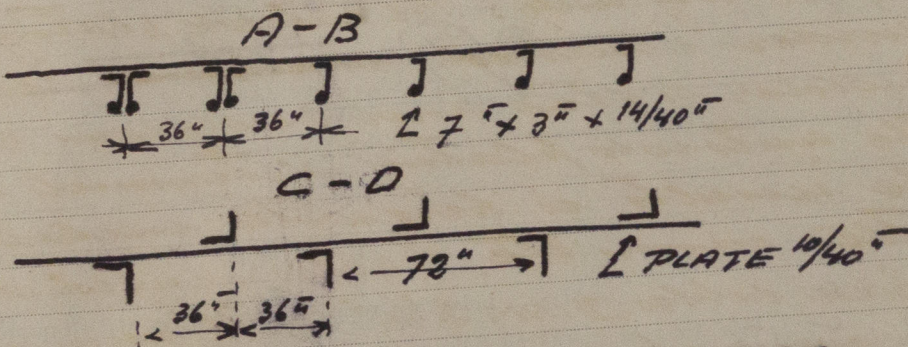 A-B
36" 36" 7" x 3" x 14/40"
C-D
72" PLATE 10/40"
36" 36"